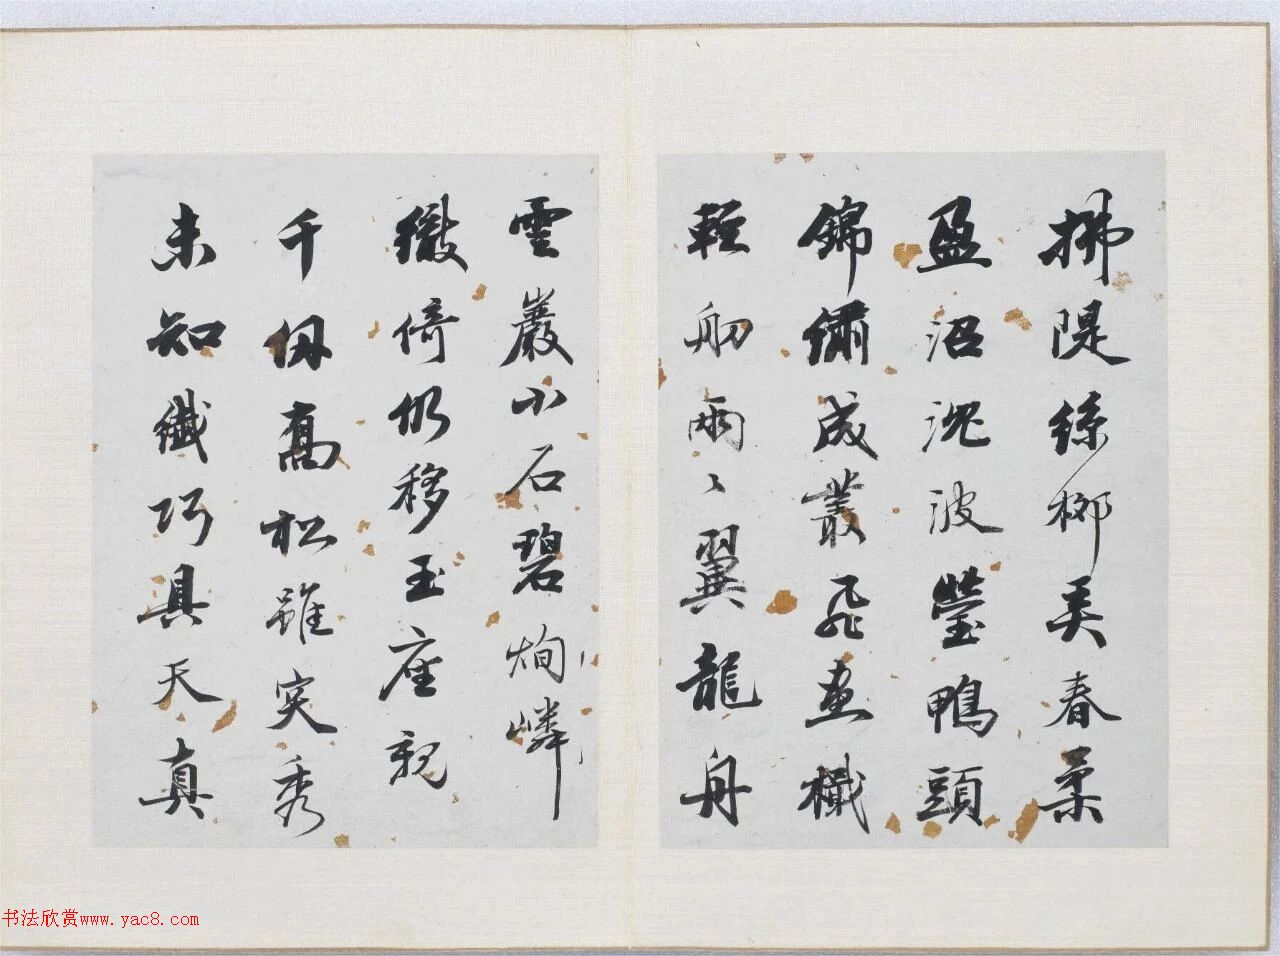 拂隄絲柳羙春柔
盈沼沈波瑩鴨頭
錦繡成叢飛畫檝
輕舠兩〻翼龍舟
雲巖小石碧㷀嶙
繖倚仍移玉座親
千仭髙松雖突秀
未知纖巧具天真
书法欣赏www.yac8.com